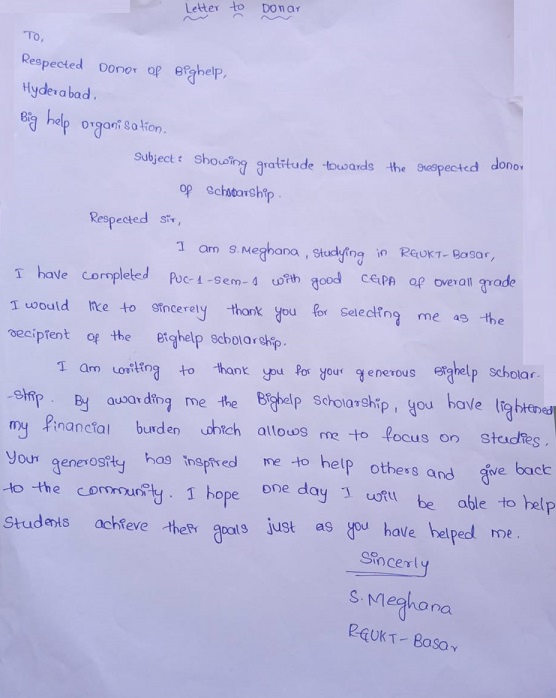 Letter to Donar
To,
Respected Donor of Bighelp,
Hyderabad.
Big help organisation.
Subject: Showing gratitude towards the respected donor
of scholarship.
Respected sir,
I am S. Meghana, studying in RGUKT-Basar,
I have completed PUC-1-Sem-1 with good CGPA of overall grade
I would like to sincerely thank you for selecting me as the
recipient of the Bighelp scholarship.
I am writing to thank you for your generous Bighelp scholar-
-ship. By awarding me the Bighelp Scholarship, you have lightened
my financial burden which allows me to focus on studies.
Your generosity has inspired me to help others and give back
to the community. I hope one day I will be able to help
Students achieve their goals just as you have helped me.
Sincerly
S. Meghana
RGUKT-Basar